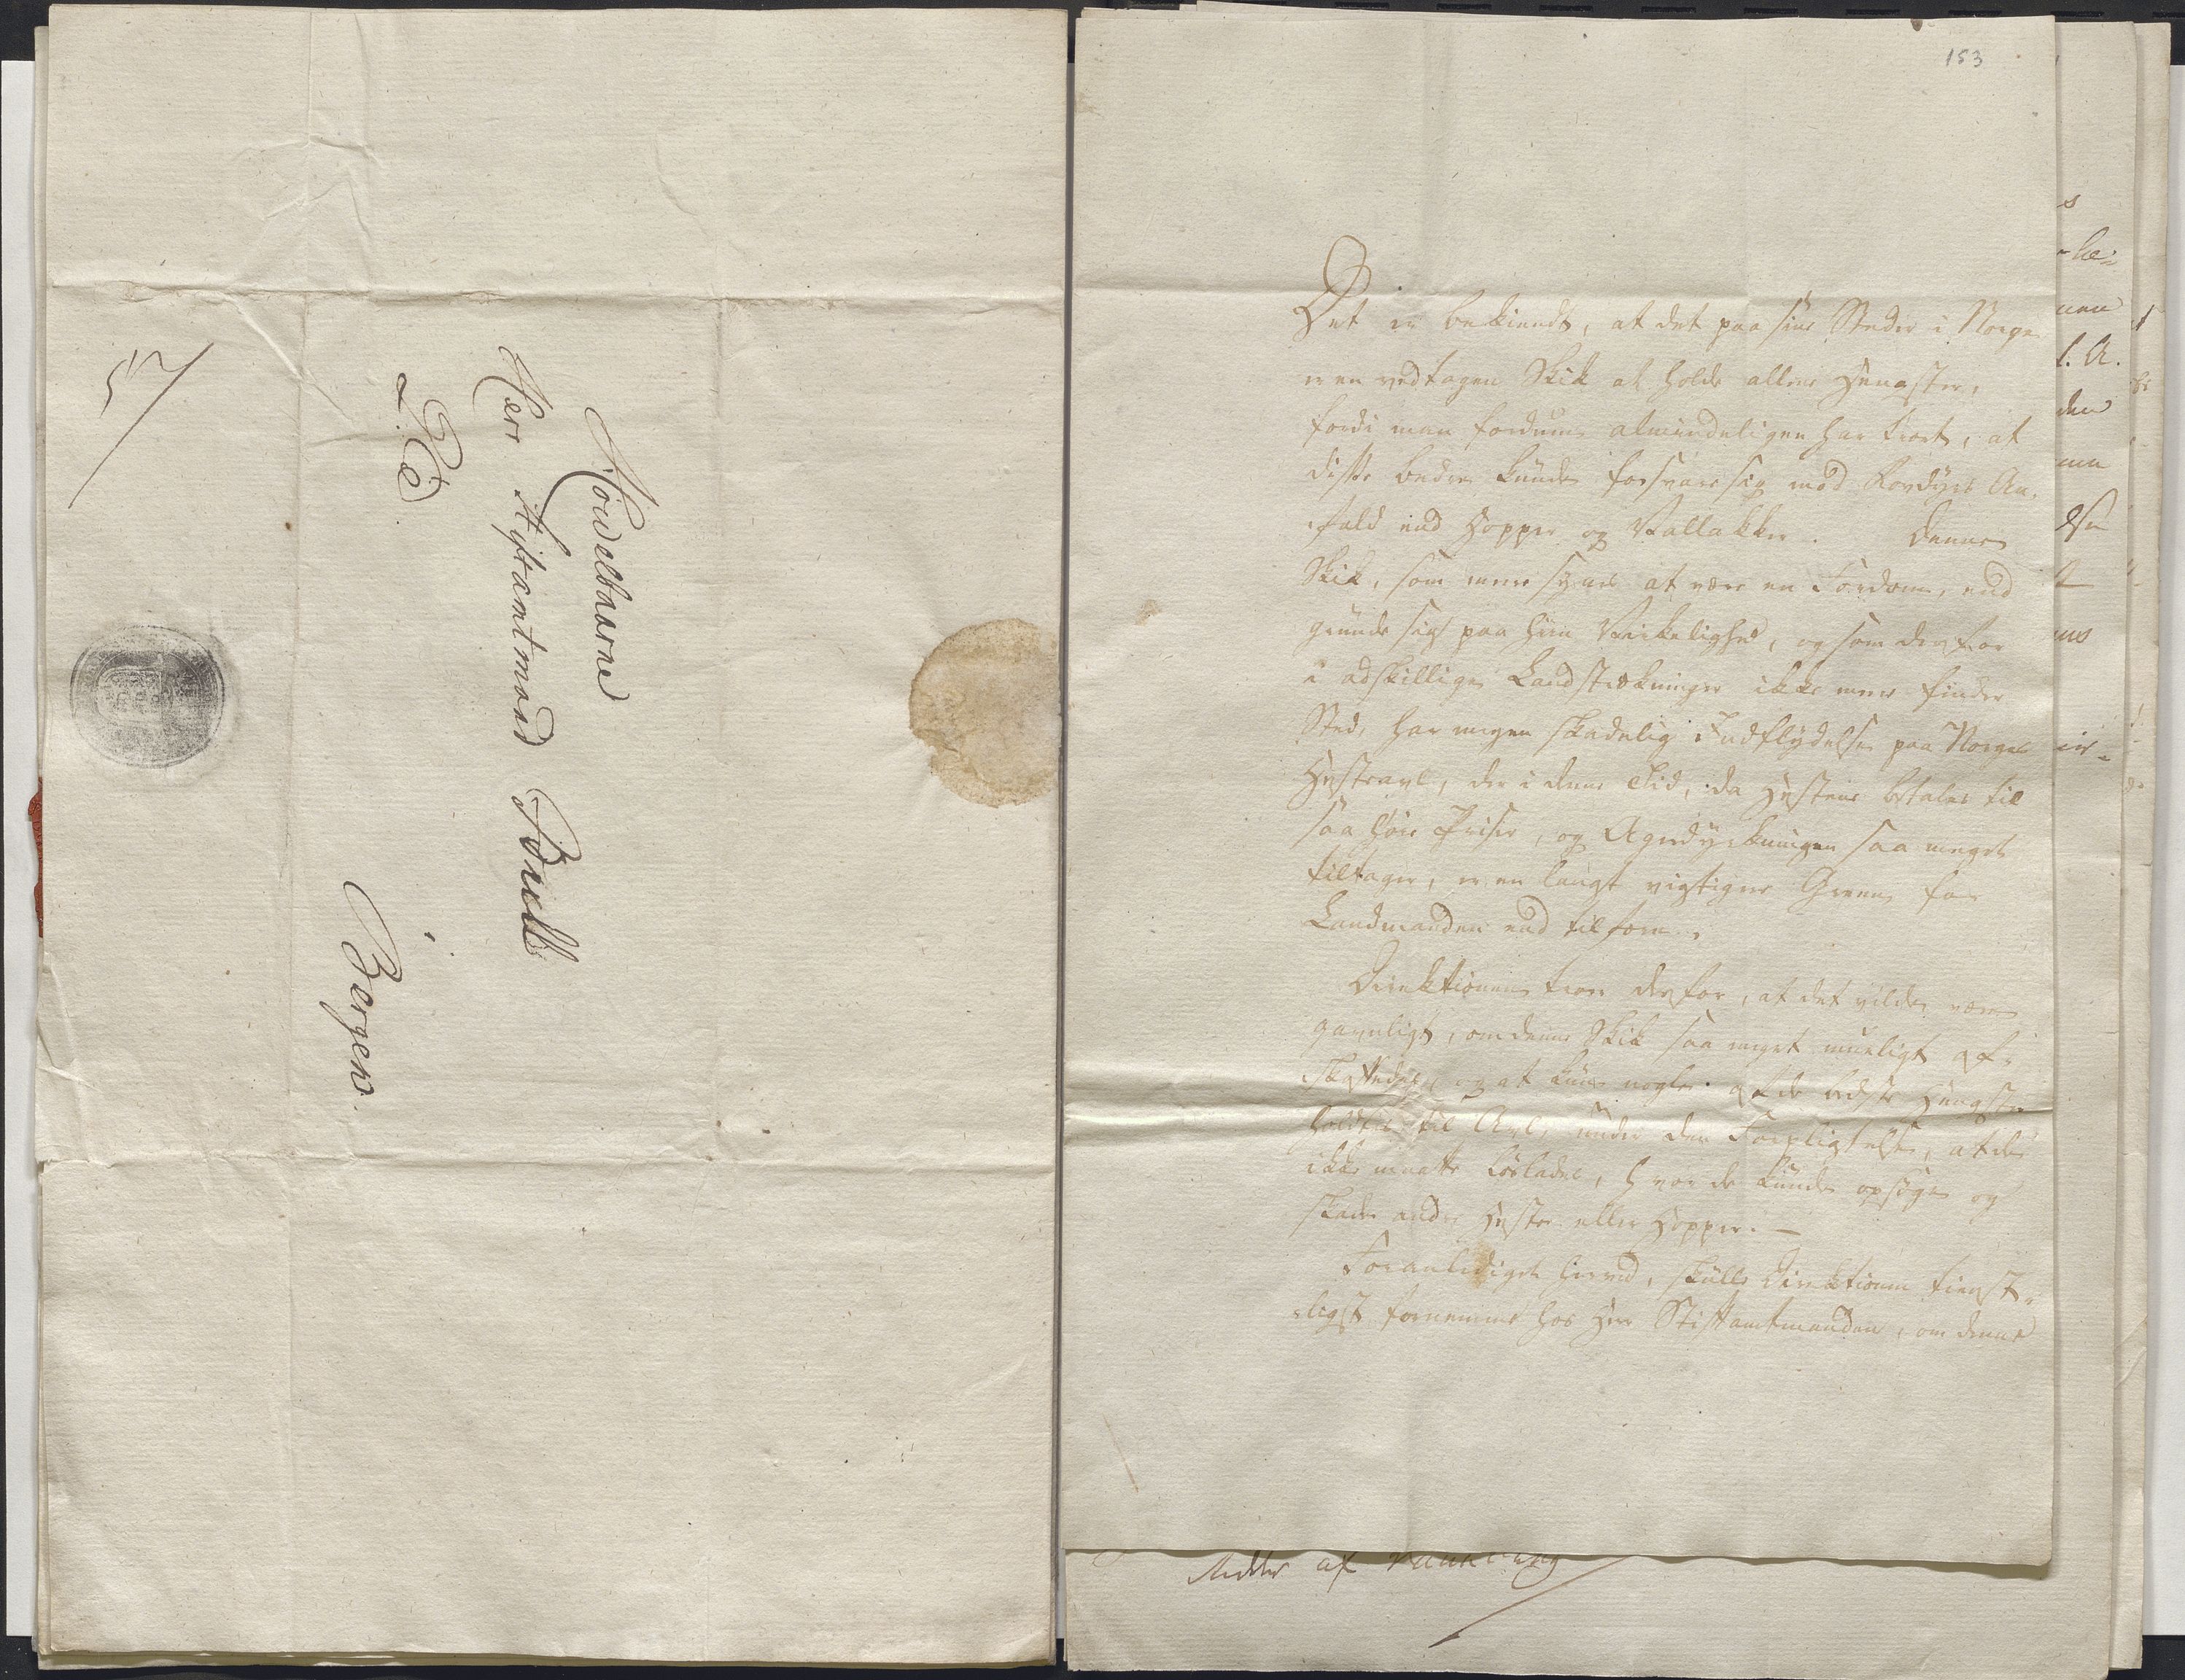 Høiedelbaarne
Herr Stiftamtmand Bull
Bergen.
153
Det er bekiendt, at det paa sine Steder i Norge
er en vedtagen Skik at holde allene Hengster,
fordi man fordum almindeligen har troet, at
disse bedre kunde forsvare sig mod Rovdyrs An-
fald end Hopper og Vallakker. Denne
Skik, som mere synes at være en Fordom, end
grunde sig paa Virkelighed, og som derfor
i adskillige Landstrækninger ikke mere finder
Sted, har megen skadelig Indflydelse paa Norges
Hesteavl, der i denne Tid, da Hestene betales til
saa høie Priser, og Agerdyrkningen saa meget
tiltager, er en langt vigtigere Green for
Landmanden end tilforn.
Direktionen troer derfor, at det vilde være
gavnligt, om denne Skik saa meget mueligt af-
skaffedes, og at kun nogle af de bedste Hengster
holdtes til Avl, under den Forpligtelse, at de
ikke maatte løslades, hvor de kunde opsøge og
skade andre Heste eller Hopper. —
Foranlediget herved, skulle Direktionen tienst-
ligst fornemme hos Herr Stiftamtmanden, om denne
Ridder af